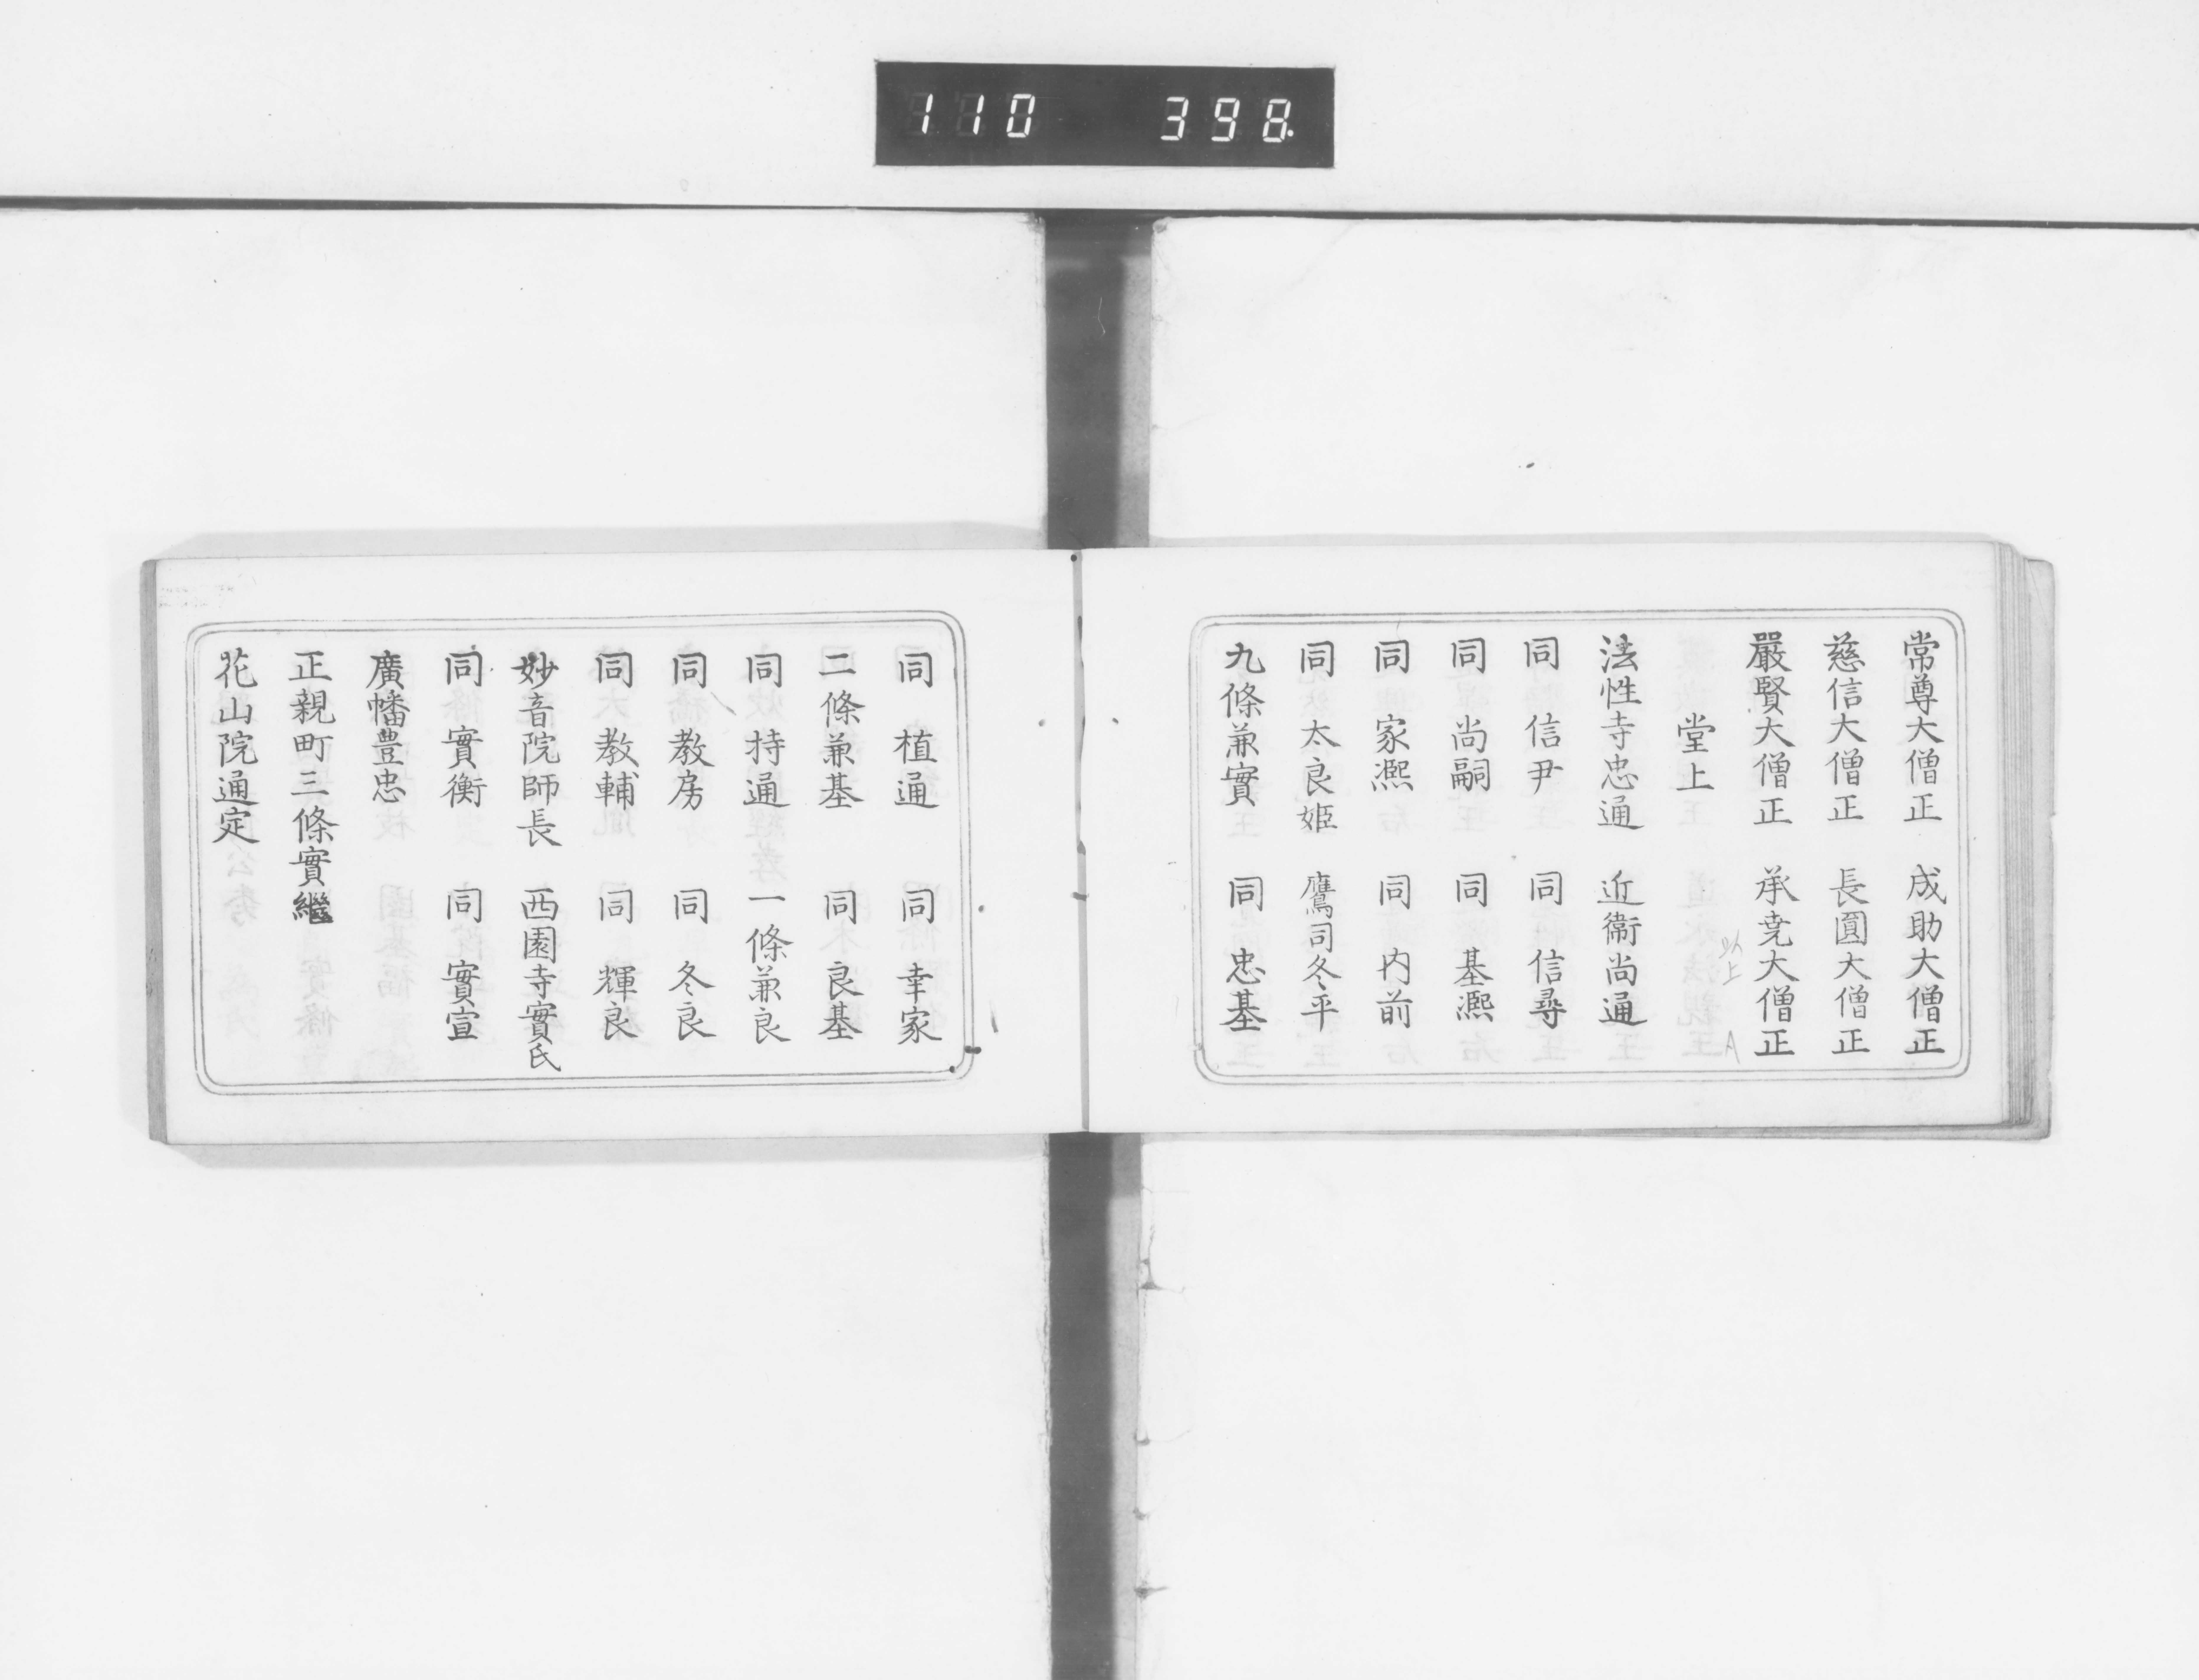 110 398
常尊大僧正 成助大僧正
慈信大僧正 長圓大僧正
嚴賢大僧正 承尭大僧正
以上
堂上
法性寺忠通 近衞尚通
同 信尹 同 信尋
同 尚嗣 同 基凞
同 家凞 同 内前
同 太良姫 鷹司冬平
九條兼實 同 忠基
同 植通 同 幸家
二條兼基 同 良基
同 持通 一條兼良
同 教房 同 冬良
同 教輔 同 輝良
妙音院師長 西園寺實氏
同 實衡 同 實宣
廣幡豊忠
正親町三條實繼
花山院通定